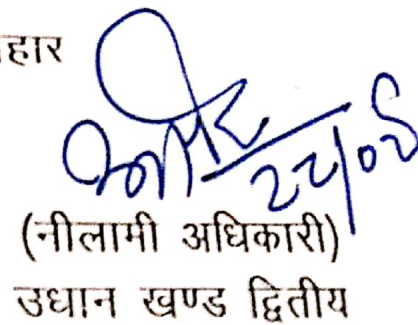 हार
(नीलामी अधिकारी)
उधान खण्ड द्वितीय